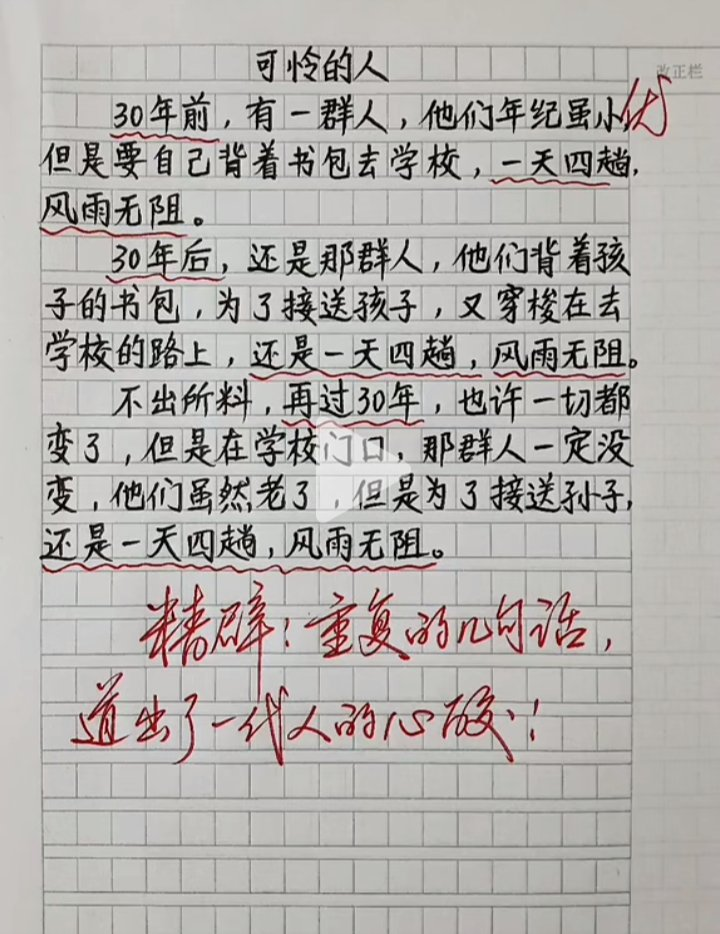 可怜的人
改正栏
30年前，有一群人，他们年纪虽小，优
但是要自己背着书包去学校，一天四趟，
风雨无阻。
30年后，还是那群人，他们背着孩
子的书包，为了接送孩子，又穿梭在去
学校的路上，还是一天四趟，风雨无阻。
不出所料，再过30年，也许一切都
变了，但是在学校门口，那群人一定没
变，他们虽然老了，但是为了接送孙子，
还是一天四趟，风雨无阻。
精辟！重复的几句话，
道出了一代人的心酸！